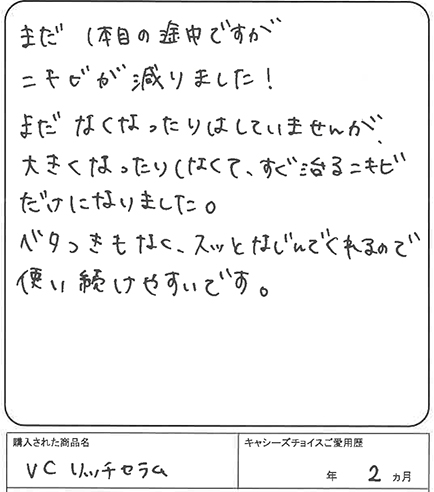 まだ 1本目の途中ですが
ニキビが減りました！
まだ なくなったりはしていませんが、
大きくなったりしなくて、すぐ治るニキビ
だけになりました。
ベタつきもなく、スッとなじんでくれるので
使い続けやすいです。
購入された商品名
キャシーズチョイスご愛用歴
VC リッチセラム
年 2 ヵ月